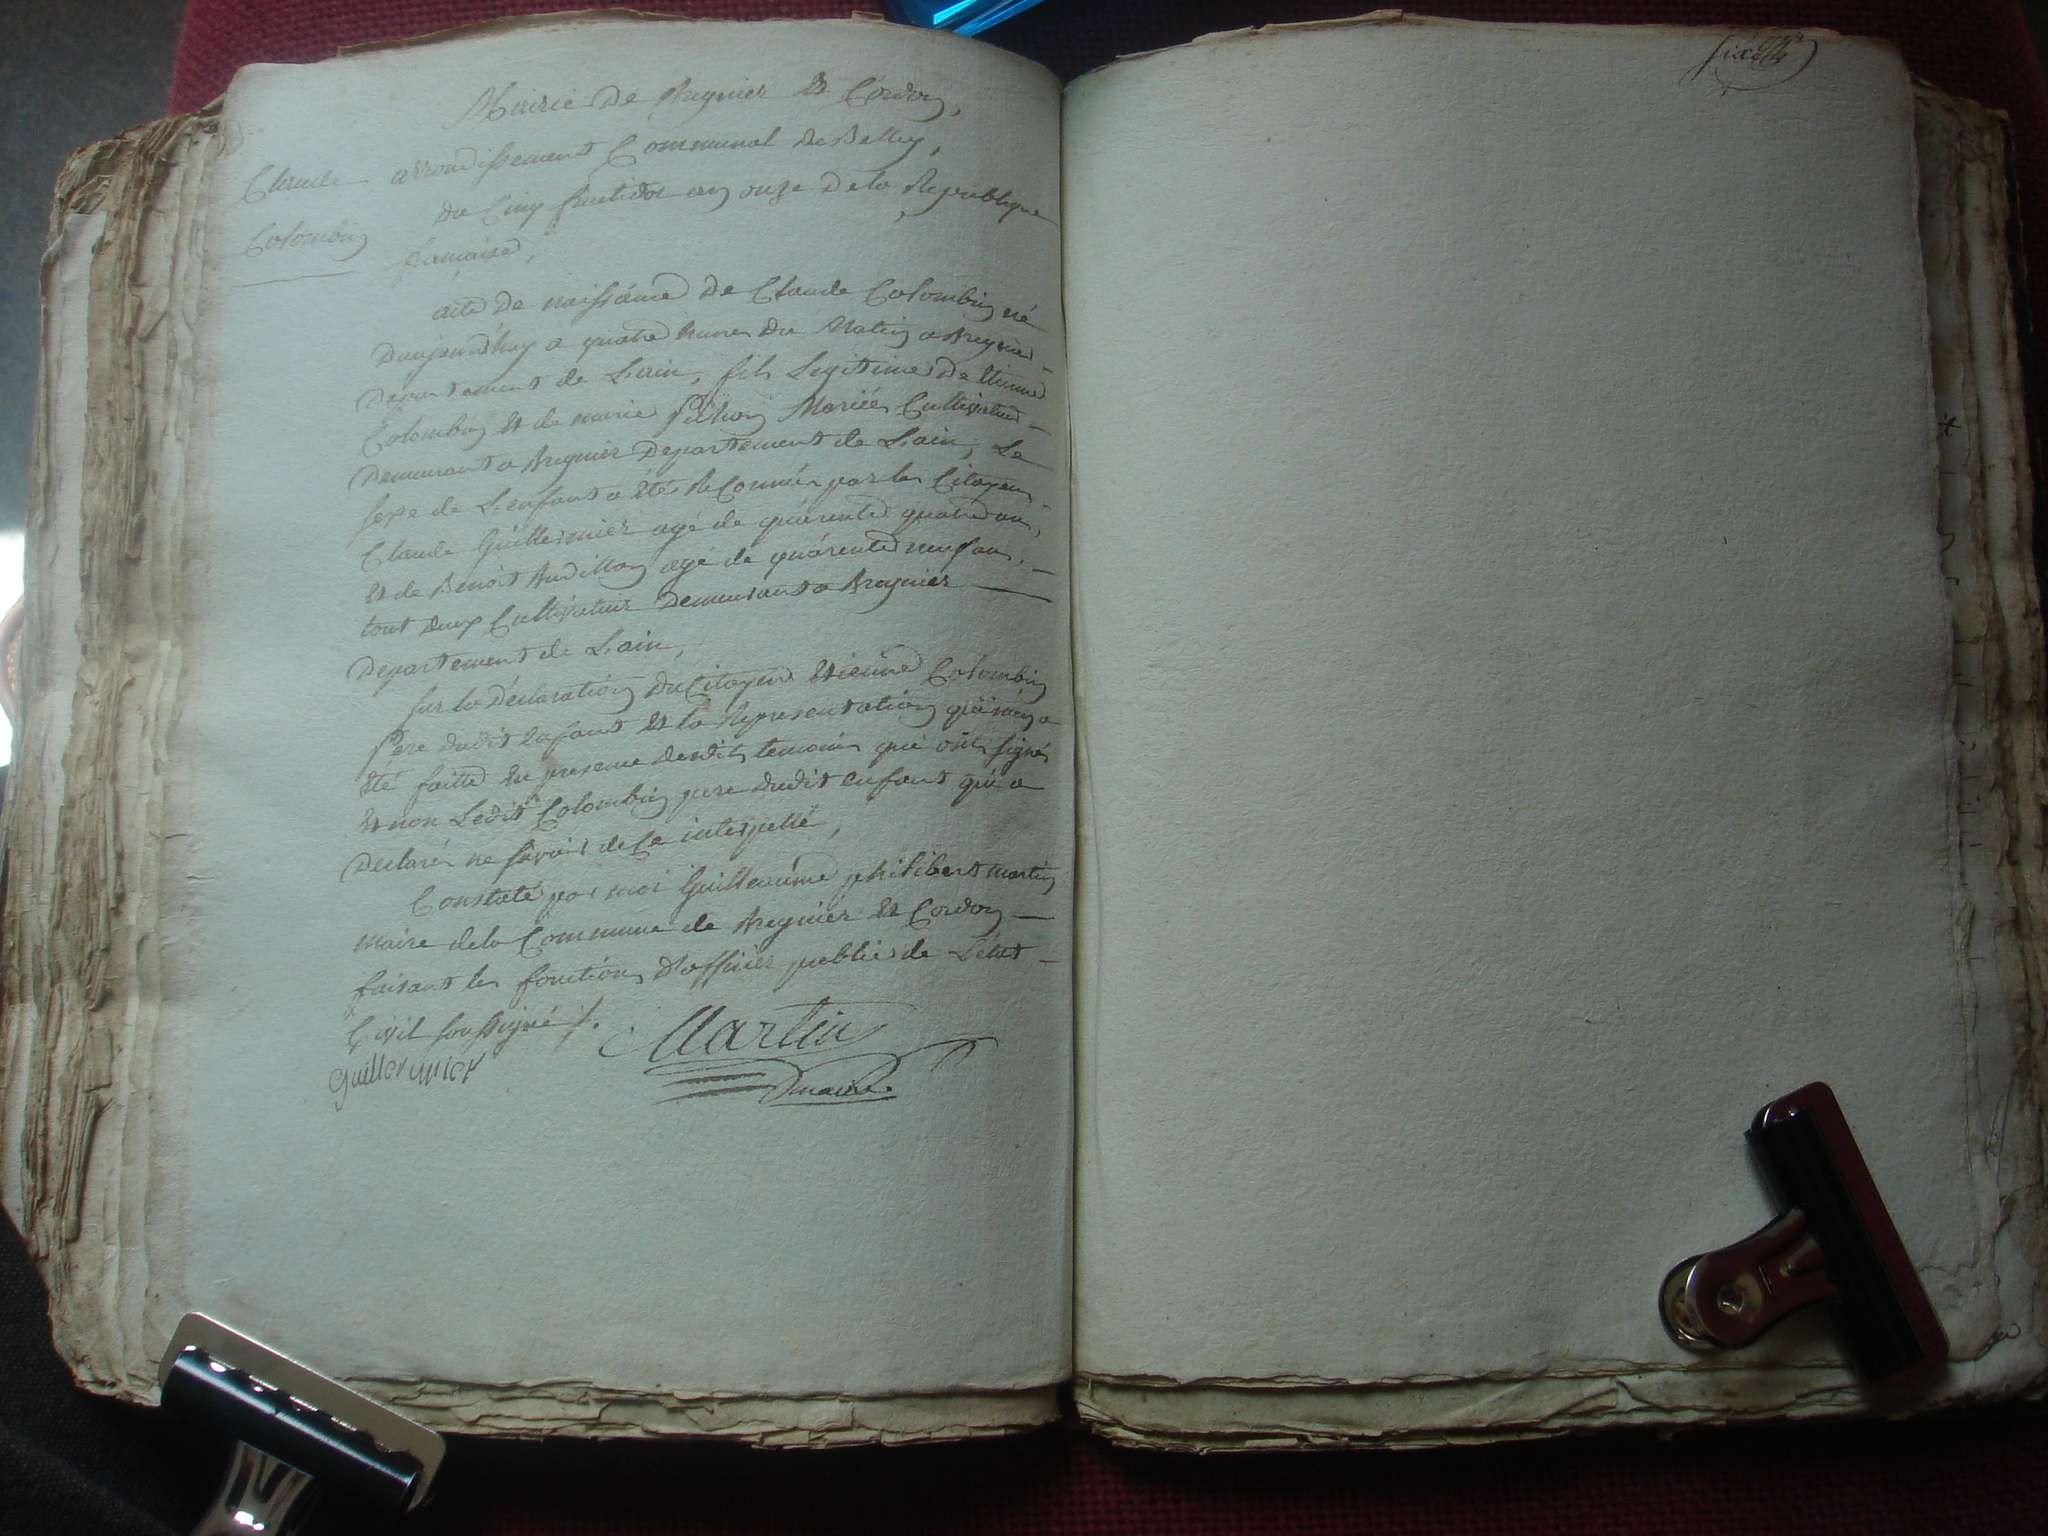 Mairie de Bregnier et Cordon,
arrondissement Communal de Belley,
Claude
du Cinq fructidor an onze de la Republique
Colombin
francaise,
acte de naissance de Claude Colombin né
aujourd'huy a quatre heures du Matin a Bregnier
Departement de L'ain, fils Legitime de Etienne
Colombin et de marie Mariés Cultivateurs
Demeurant a Bregnier Departement de L'ain, Le
sexe de L'enfant a été Reconnu par les Citoyens
Claude Guillermier agé de quarente quatre ans,
et de Benoit Audillon agé de quarente neuf ans,
tout deux Cultivateurs Demeurant a Bregnier
Departement de L'ain,
sur la Déclaration du Citoyen Etienne Colombin
Pere dudit enfant et la Representation qui m'en a
été faitte en presence desdits temoins qui ont signés
et non Ledit Colombin pere dudit enfant qui a
Declaré ne savoir de ce interpellé,
Constaté par moi Guilleaume philibert martin
maire de la Commune de Bregnier et Cordon
faisant les fonctions d'officier public de L'état
Civil soussigné ./.
Martin
Guillermier
maire.